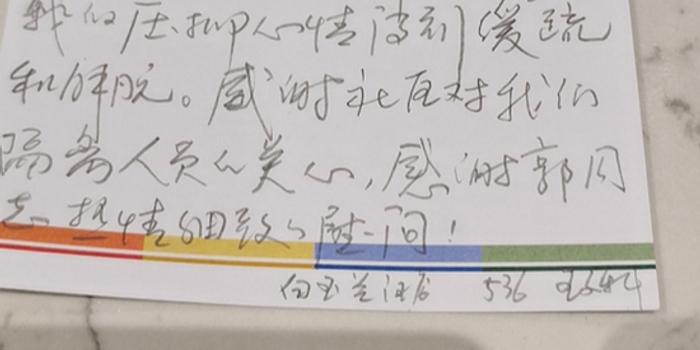 我们压抑心情得到缓疏
和解脱。感谢社区对我们
隔离人员的关心,感谢郭同
志热情细致的慰问!
白玉兰酒店 536